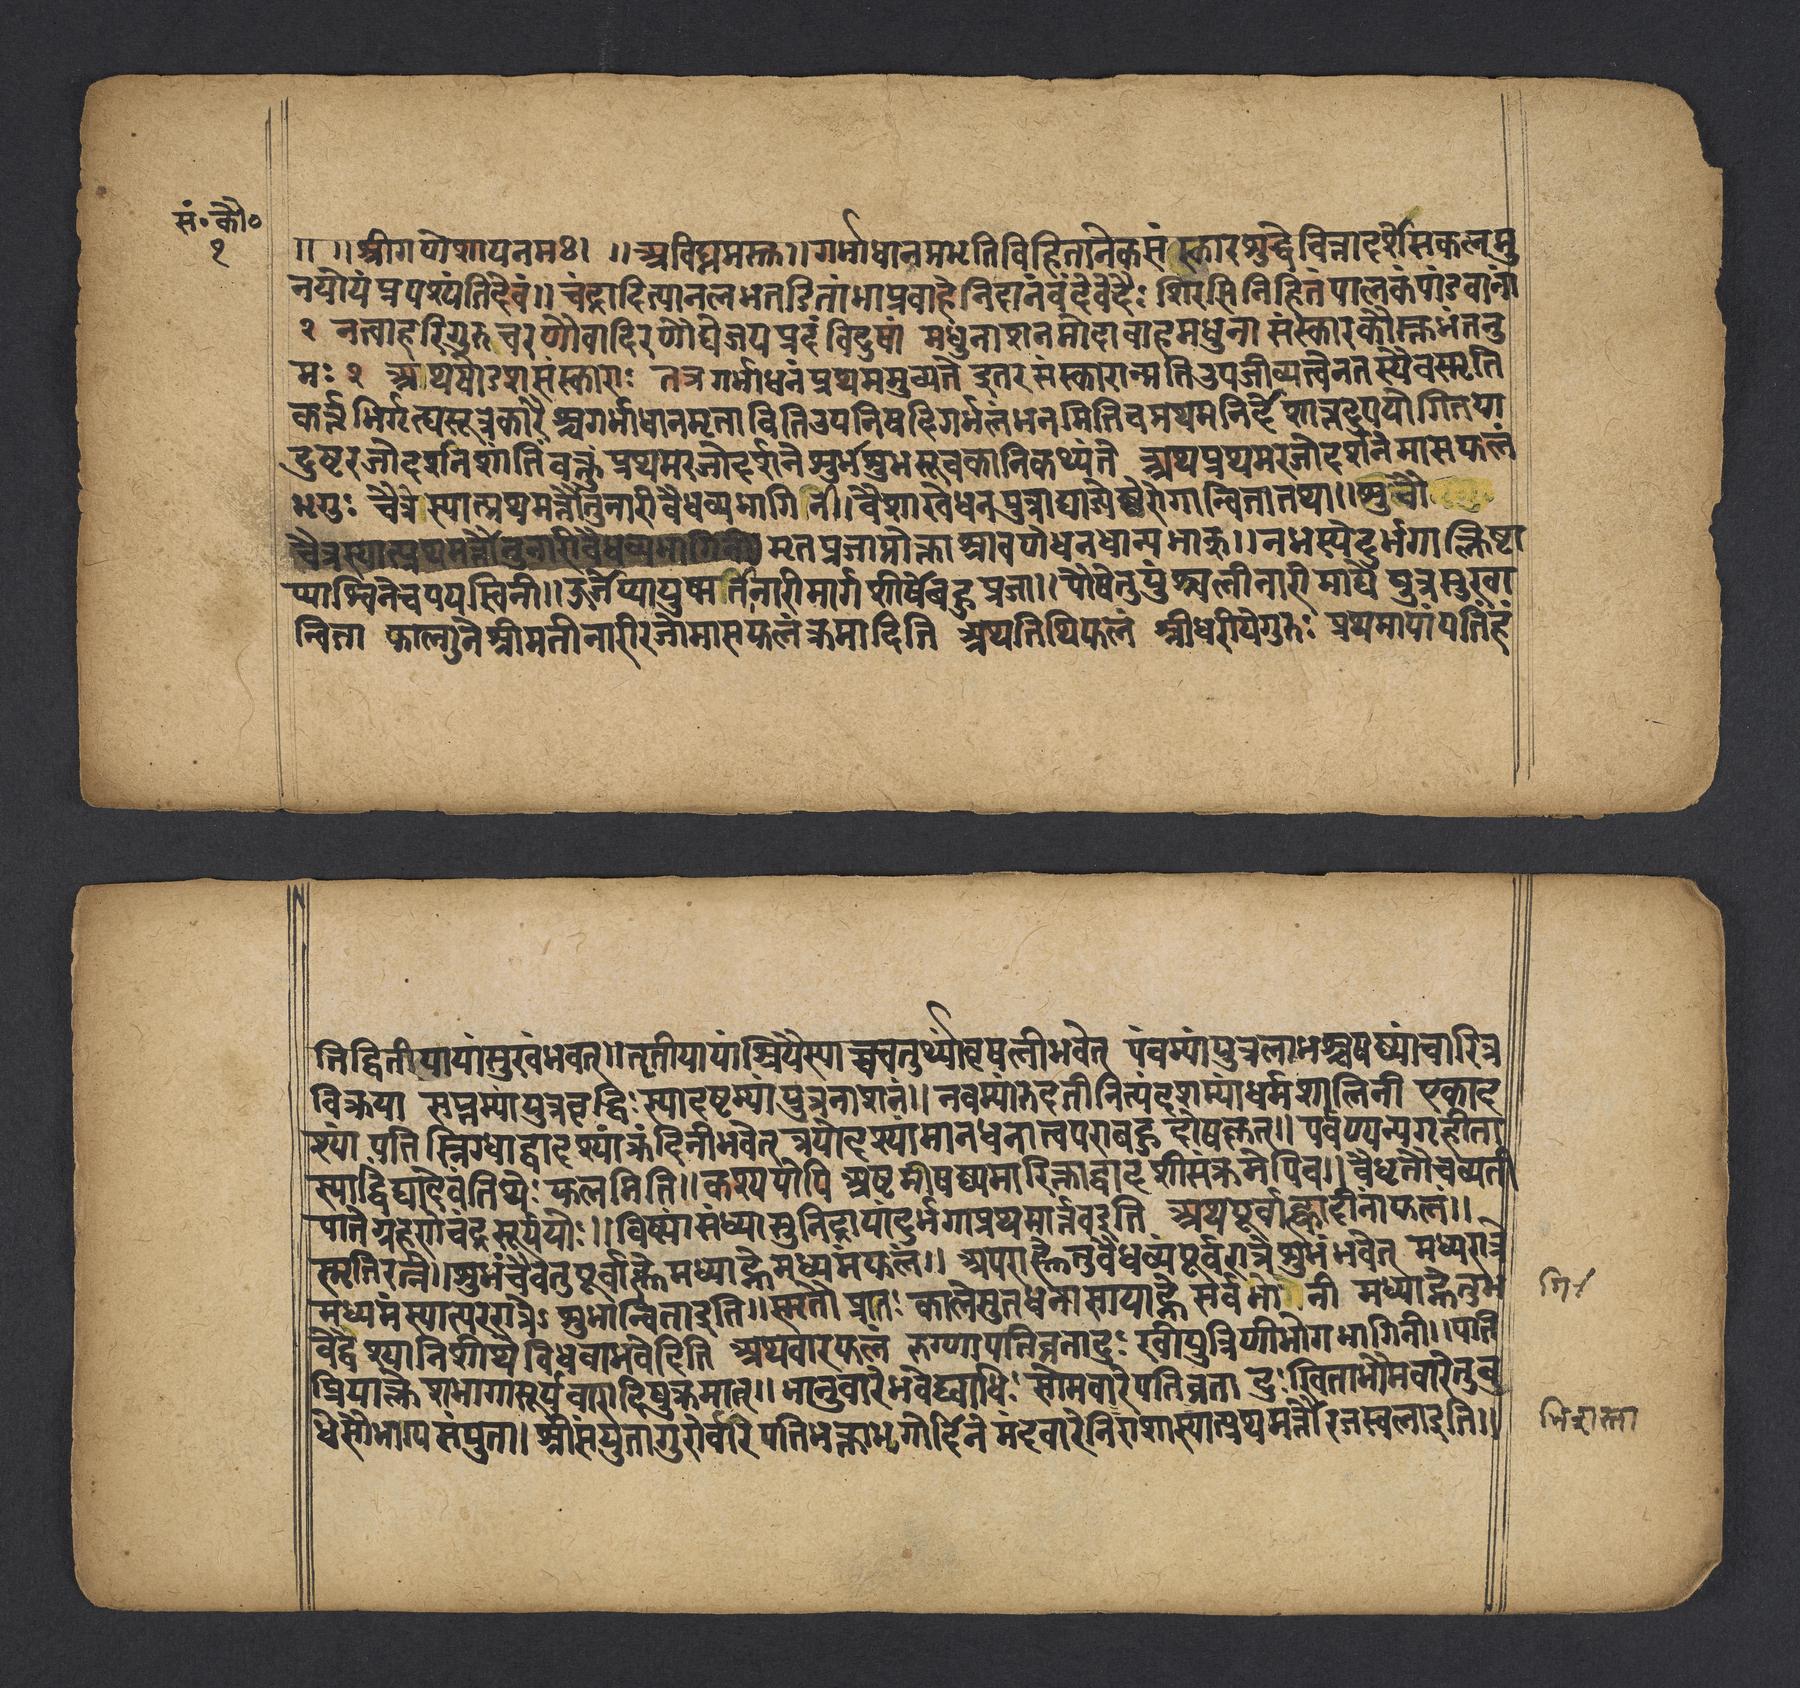 सं॰ कौ॰
१
॥ ॥ श्रीगणेशायनमः॥ ॥ अविघ्नमस्तु॥ गर्भाधानप्रभृतिविहितानेकसंस्कारशुद्धेचित्तादर्शेसकलमु
नयोयंप्रपश्यंतिदेवं॥ चंद्रादित्यानलभतडितांभाप्रवाहेनिदानंवंदेवेदैः शिरसिनिहितंपालकंपांडवानां
१ नत्वाहरिंगुरुचरणौवादिरणौघेजयप्रदंविदुषां मधुनाशनमोदावाहमधुना संस्कारकौस्तुभंतनु
मः २ अथषोडशसंस्काराः तत्रगर्भाधनंप्रथममुच्यते इतरसंस्कारान्प्रतिउपजीव्यत्वेनतस्यैवस्मृति
कर्तृभिर्गृह्यसूत्रकारैश्चगर्भाधानमृताविति उपनिषदिगर्भलंभनमितिचप्रथमनिर्देशात्तदुपयोगितया
दुष्टरजोदर्शनेशांतिंवक्तुंप्रथमरजोदर्शनेशुभाशुभसूचकानिकथ्यंते अथप्रथमरजोदर्शनेमासफलं
भृगुः चैत्रेस्यात्प्रथमर्तौतुनारीवैधव्यभागिनी॥ वैशाखेधनपुत्राढ्याज्येष्ठेरोगान्वितातथा॥ शुचौ
चैत्रस्यात्प्रथमर्तौतुनारीवैधव्यभागिनी मृतप्रजाप्रोक्ताश्रावणेधनधान्यभाक्॥ नभस्येदुर्भगाक्लिष्टा
प्याश्विनेचपयस्विनी॥ ऊर्जेप्यायुष्मतीनारीमार्गशीर्षेबहुप्रजा॥ पौषेतुपुंश्चलीनारी माघे पुत्रसुखा
न्विता फाल्गुनेश्रीमतीनारीरजोमासफलंक्रमादिति अथतिथिफलं श्रीधरीयेगुरुः प्रथमायांपतिंहं
तिद्वितीयायांसुखंभवेत्॥ तृतीयायांश्रियैस्याच्चचतुर्थ्यांवृषलीभवेत् पंचम्यांपुत्रलाभश्चषष्ठ्यांचारित्र
विक्रया सप्तम्यांपुत्रवृद्धिःस्यादष्टम्यांपुत्रनाशनं॥ नवम्यांरुदतीनित्यंदशम्यांधर्मशालिनी एकाद
श्यां पतिस्निग्धाद्वादश्यांक्रंदिनीभवेत् त्रयोदश्यांमानधनात्वपराबहुदोषकृत्॥ पर्वण्यन्यगृहीता
स्याद्विद्यादेवंतिथेः फलमिति॥ कश्यपोपि अष्टमीषष्ठ्यमारिक्ताद्वादशीसंक्रमेपिच॥ वैधृतौचव्यती
पातेग्रहणेचंद्रसूर्ययोः॥ विष्ट्यांसंध्यासुनिद्रायांदुर्भगाप्रथमार्तवइति अथपूर्वाह्णादीनांफलं॥
स्मृतिरत्ने॥ शुभंचैवेतुपूर्वाह्णेमध्याह्नेमध्यमंफलं॥ अपराह्णेतुवैधव्यंपूर्वरात्रेशुभंभवेत् मध्यरात्रे
मध्यमंस्यात्पररात्रेऽशुभान्विताइति॥ स्मृतौ प्रातःकालेसुतधनासायाह्ने सर्वभोगिनी मध्याह्नेतुभ
गि/
वेद्वेश्यानिशीथेविधवाभवेदिति अथवारफलं रुग्णापतिव्रतादुःखीपुत्रिणीभोगभागिनी॥ पति
प्रियाक्लेशभागासूर्यवारादिषुक्रमात्॥ भानुवारेभवेद्व्याधिः सोमवारेपतिव्रता दुःखिताभौमवारेतुबु
धेसौभाग्यसंयुता॥ श्रीसंयुतागुरोर्वारेपतिभक्ताभृगोर्दिने मंदवारेनिराशास्यात्प्रथमर्तौरजस्वलाइति॥